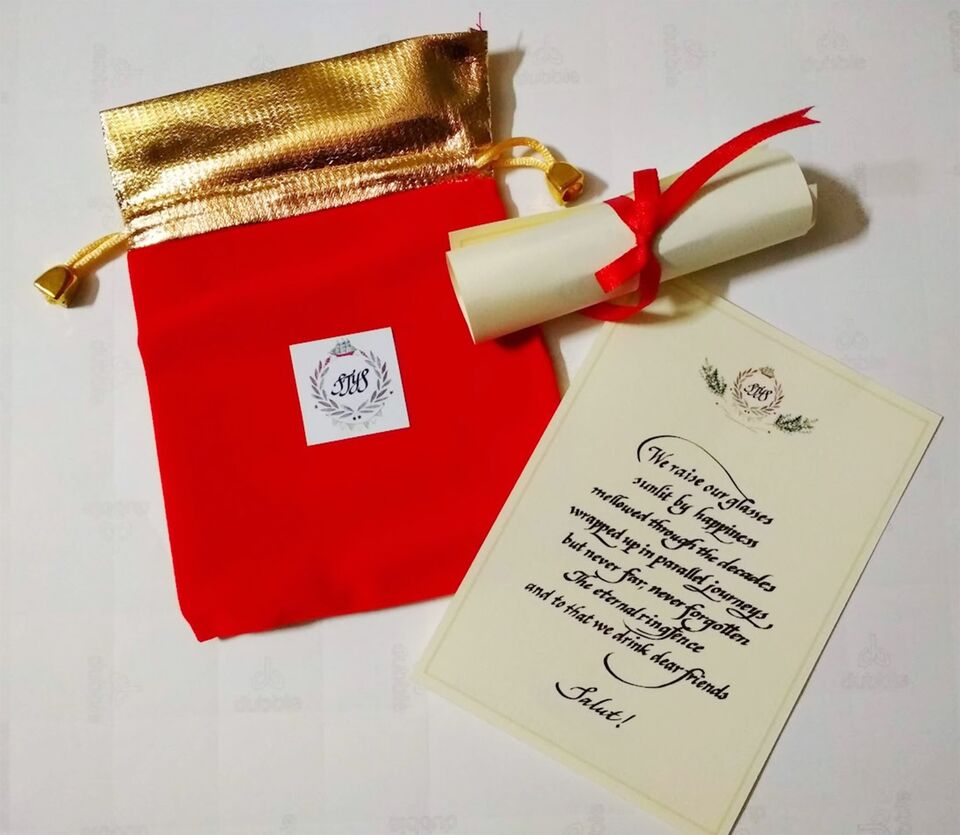 STYS
STYS
We raise our glasses
sunlit by happiness
mellowed through the decades
wrapped up in parallel journeys
but never far, never forgotten
The eternal ringfence
and to that we drink dear friends
Salut!